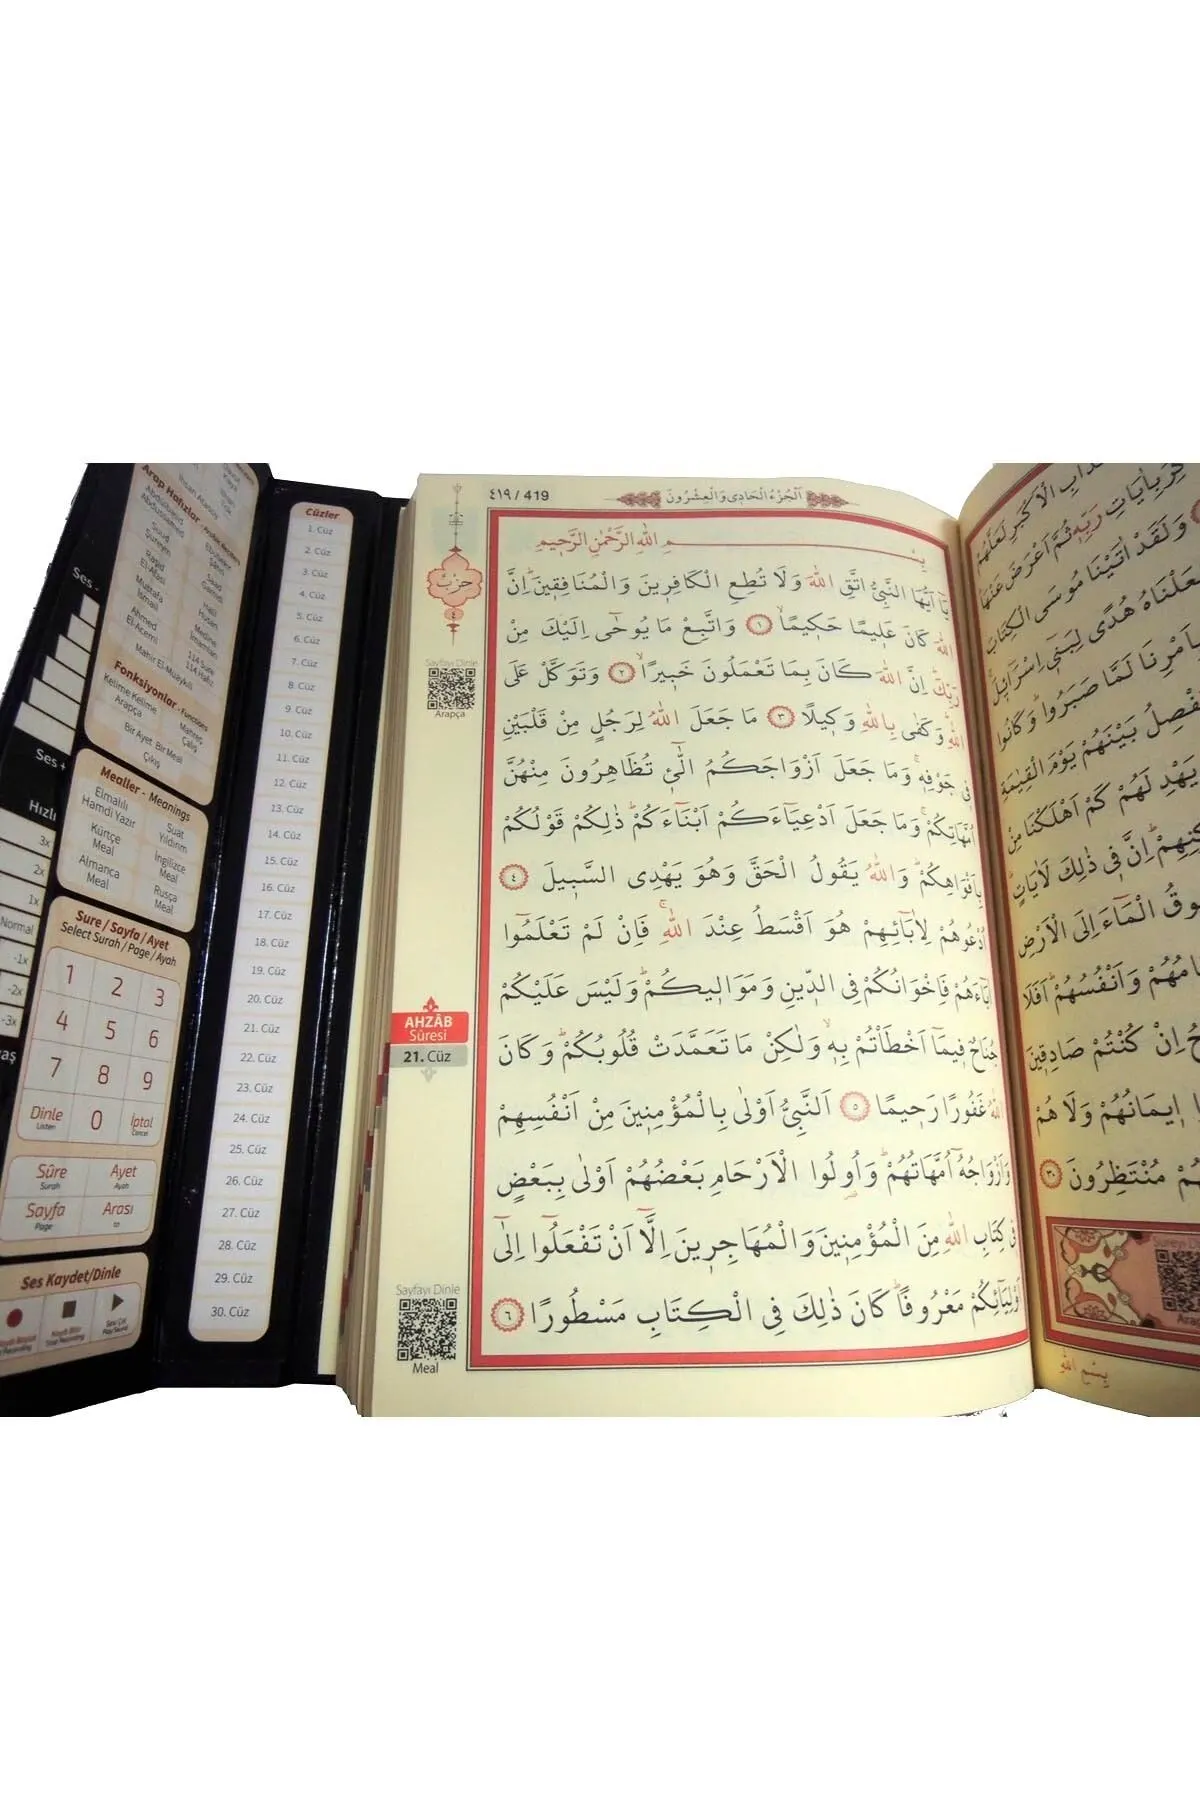 Arap Hafızlar
Abdussamed
Suud
Şureym
Raşid
El-Afasi
Mustafa
İsmail
Ahmed
El-Acemi
Saad
Halil
Medine
İmamları
114 Sure
114 Hafız
Mahir El-Muaykıli
Fonksiyonlar - Functions
Kelime Kelime
Arapça
Mahreç
Çalış
Bir Ayet, Bir Meal
Çıkış
Ses -
Ses +
Hızlı
3x
2x
1x
Normal
-1x
-2x
-3x
Mealler - Meanings
Elmalılı
Hamdi Yazır
Suat
Yıldırım
Kürtçe
Meal
İngilizce
Meal
Almanca
Meal
Rusça
Meal
Sure / Sayfa / Ayet
Select Surah / Page / Ayah
1 2 3
4 5 6
7 8 9
Dinle 0 İptal
Listen Cancel
Sûre Ayet
Surah Ayah
Sayfa Arası
Page to
Ses Kaydet/Dinle
Cüzler
1. Cüz
2. Cüz
3. Cüz
4. Cüz
5. Cüz
6. Cüz
7. Cüz
8. Cüz
9. Cüz
10. Cüz
11. Cüz
12. Cüz
13. Cüz
14. Cüz
15. Cüz
16. Cüz
17. Cüz
18. Cüz
19. Cüz
20. Cüz
21. Cüz
22. Cüz
23. Cüz
24. Cüz
25. Cüz
26. Cüz
27. Cüz
28. Cüz
29. Cüz
30. Cüz
٤١٩ / 419
اَلْجُزْءُ الْحَادِى وَالْعِشْرُونَ
حزب
٤
Sayfayı Dinle
Arapça
AHZÂB
Sûresi
21. Cüz
Sayfayı Dinle
Meal
بِسْمِ اللّٰهِ الرَّحْمٰنِ الرَّحِيمِ
يَٓا اَيُّهَا النَّبِىُّ اتَّقِ اللّٰهَ وَلَا تُطِعِ الْكَافِرِينَ وَالْمُنَافِقِينَۜ اِنَّ
اللّٰهَ كَانَ عَلِيمًا حَكِيمًاۙ ١ وَاتَّبِعْ مَا يُوحٰٓى اِلَيْكَ مِنْ
رَبِّكَۜ اِنَّ اللّٰهَ كَانَ بِمَا تَعْمَلُونَ خَبِيرًاۙ ٢ وَتَوَكَّلْ عَلَى
اللّٰهِۜ وَكَفٰى بِاللّٰهِ وَكِيلًا ٣ مَا جَعَلَ اللّٰهُ لِرَجُلٍ مِنْ قَلْبَيْنِ
فِى جَوْفِهٖۚ وَمَا جَعَلَ اَزْوَاجَكُمُ الّٰٓئِ تُظَاهِرُونَ مِنْهُنَّ
اُمَّهَاتِكُمْۚ وَمَا جَعَلَ اَدْعِيَٓاءَكُمْ اَبْنَٓاءَكُمْۜ ذٰلِكُمْ قَوْلُكُمْ
بِاَفْوَاهِكُمْۜ وَاللّٰهُ يَقُولُ الْحَقَّ وَهُوَ يَهْدِى السَّبِيلَ ٤
اُدْعُوهُمْ لِاٰبَٓائِهِمْ هُوَ اَقْسَطُ عِنْدَ اللّٰهِۚ فَاِنْ لَمْ تَعْلَمُٓوا
اٰبَٓاءَهُمْ فَاِخْوَانُكُمْ فِى الدِّينِ وَمَوَالِيكُمْۜ وَلَيْسَ عَلَيْكُمْ
جُنَاحٌ فِيمَٓا اَخْطَأْتُمْ بِهٖۙ وَلٰكِنْ مَا تَعَمَّدَتْ قُلُوبُكُمْۜ وَكَانَ
اللّٰهُ غَفُورًا رَحِيمًا ٥ اَلنَّبِىُّ اَوْلٰى بِالْمُؤْمِنِينَ مِنْ اَنْفُسِهِمْ
وَاَزْوَاجُهُٓ اُمَّهَاتُهُمْۜ وَاُولُوا الْاَرْحَامِ بَعْضُهُمْ اَوْلٰى بِبَعْضٍ
فِى كِتَابِ اللّٰهِ مِنَ الْمُؤْمِنِينَ وَالْمُهَاجِرِينَ اِلَّٓا اَنْ تَفْعَلُٓوا اِلٰٓى
اَوْلِيَٓائِكُمْ مَعْرُوفًاۜ كَانَ ذٰلِكَ فِى الْكِتَابِ مَسْطُورًا ٦
ذُكِّرَ بِاٰيَاتِ رَبِّهٖ ثُمَّ اَعْرَضَ عَنْهَا
وَلَقَدْ اٰتَيْنَا مُوسَى الْكِتَابَ
هُدًى لِبَنٓى اِسْرَٓائِلَ
بِاَمْرِنَا لَمَّا صَبَرُوا وَكَانُوا
يَفْصِلُ بَيْنَهُمْ يَوْمَ الْقِيٰمَةِ
يَهْدِ لَهُمْ كَمْ اَهْلَكْنَا مِنْ
اِنَّ فِى ذٰلِكَ لَاٰيَاتٍ
نَسُوقُ الْمَٓاءَ اِلَى الْاَرْضِ
وَاَنْفُسُهُمْ اَفَلَا
اِنْ كُنْتُمْ صَادِقِينَ
اِيمَانُهُمْ وَلَا هُمْ
مُنْتَظِرُونَ ٣٠